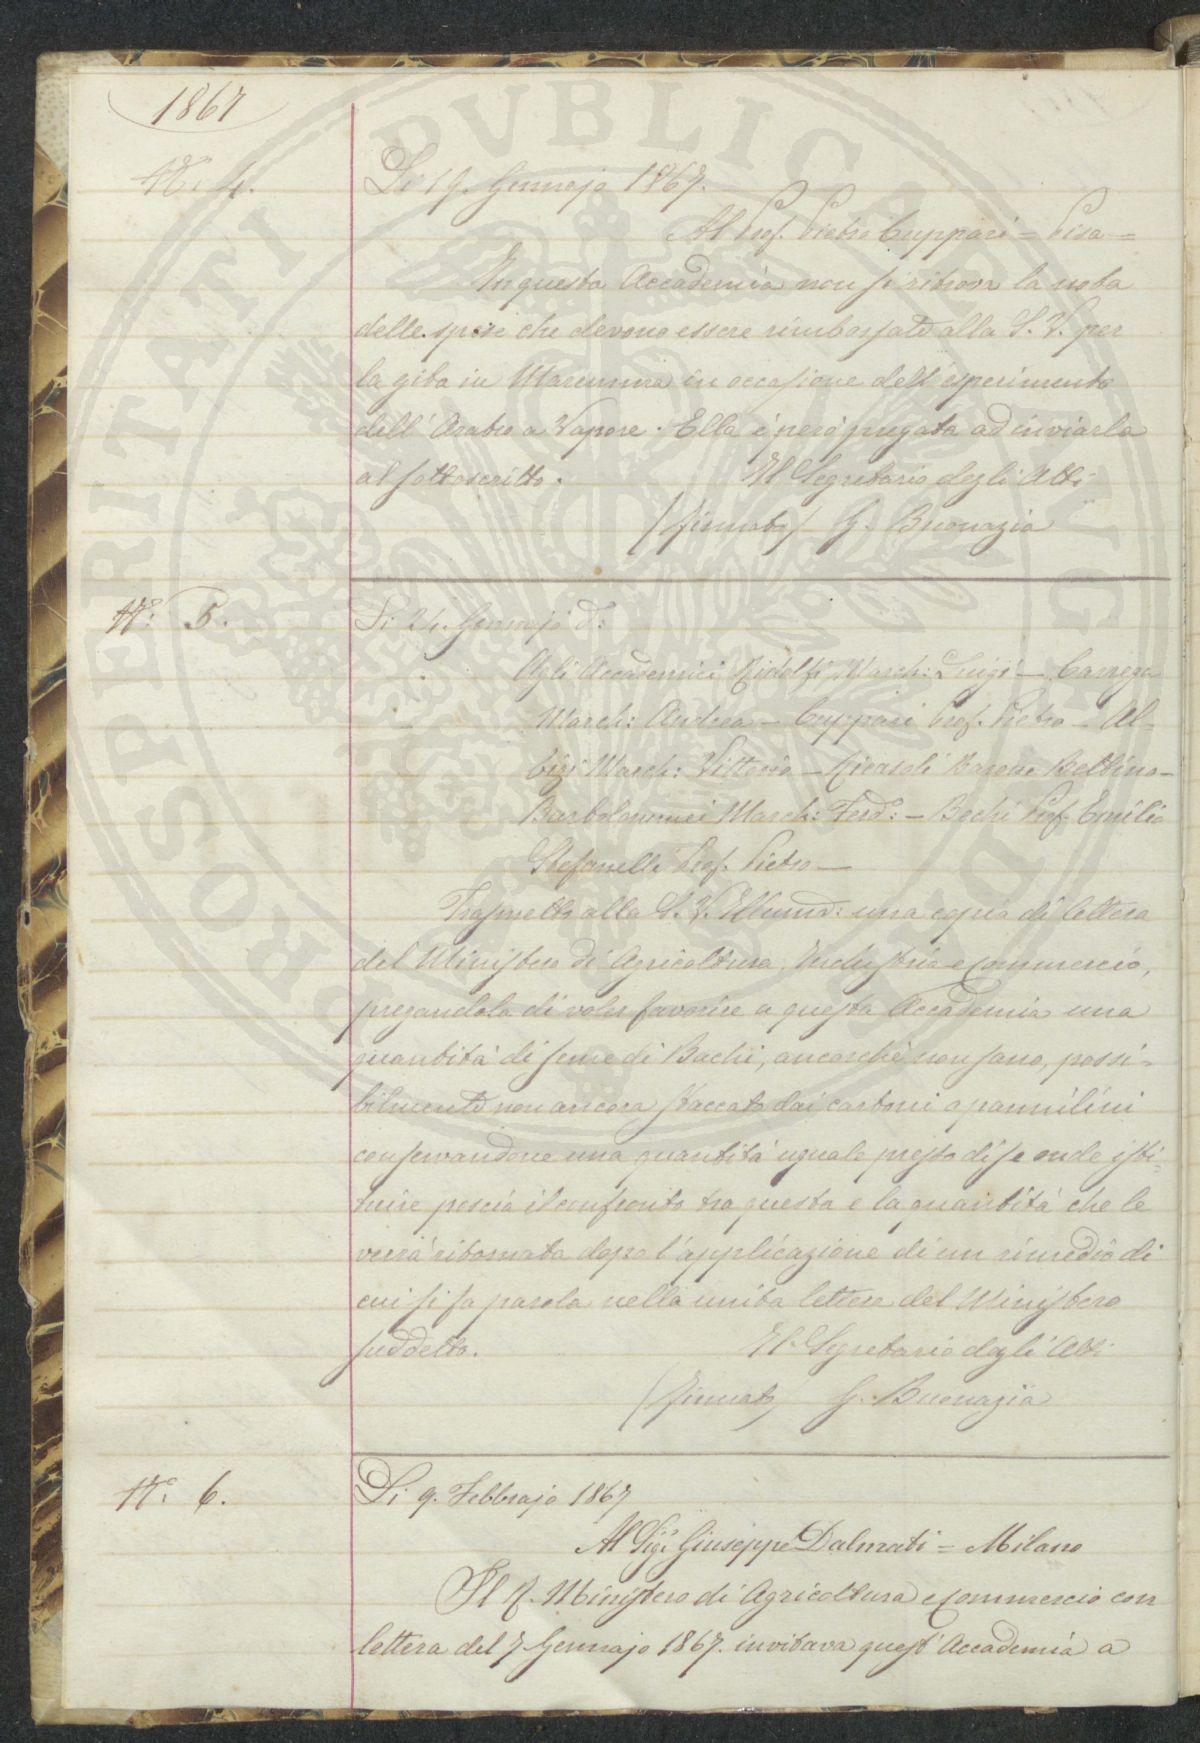 1867
N: 4.
Di 19. Gennajo 1867.
Al Prof. Pietro Cuppari = Pisa =
In questa Accademia non si ritrova la nota
delle spese che devono essere rimborsate alla S. V. per
la gita in Maremma in occasione dell'esperimento
dell'Aratro a Vapore. Ella è però pregata ad inviarla
al sottoscritto.
Il Segretario degli Atti
(firmato) G. Buonazia
N: 5.
Di 24. Gennajo do:
Agli Accademici Ridolfi March: Luigi — Carrega
March: Andrea — Cuppari Prof. Pietro — Al-
bizi March: Vittorio — Ricasoli Barone Bettino —
Bartolommei March: Ferdo: — Bechi Prof. Emilio
Stefanelli Prof. Pietro —
Trasmetto alla S. V. Illuma: una copia di lettera
del Ministero di Agricoltura, Industria e Commercio,
pregandola di voler favorire a questa Accademia una
quantità di seme di Bachi, ancorchè non sano, possi-
bilmente non ancora staccato dai cartoni o pannilini
conservandone una quantità uguale presso di se onde isti-
tuire poscia il confronto tra questa e la quantità che le
verrà ritornata dopo l'applicazione di un rimedio di
cui si fa parola nella unita lettera del Ministero
suddetto.
Il Segretario degli Atti
(firmato) G. Buonazia
N: 6.
Di 9. Febbrajo 1867
Al Sigr Giuseppe Dalmati = Milano
Il R. Ministero di Agricoltura e Commercio con
lettera del 7 Gennajo 1867. invitava quest'Accademia a
PROSPERITATI PVBLICAE AVGENDAE